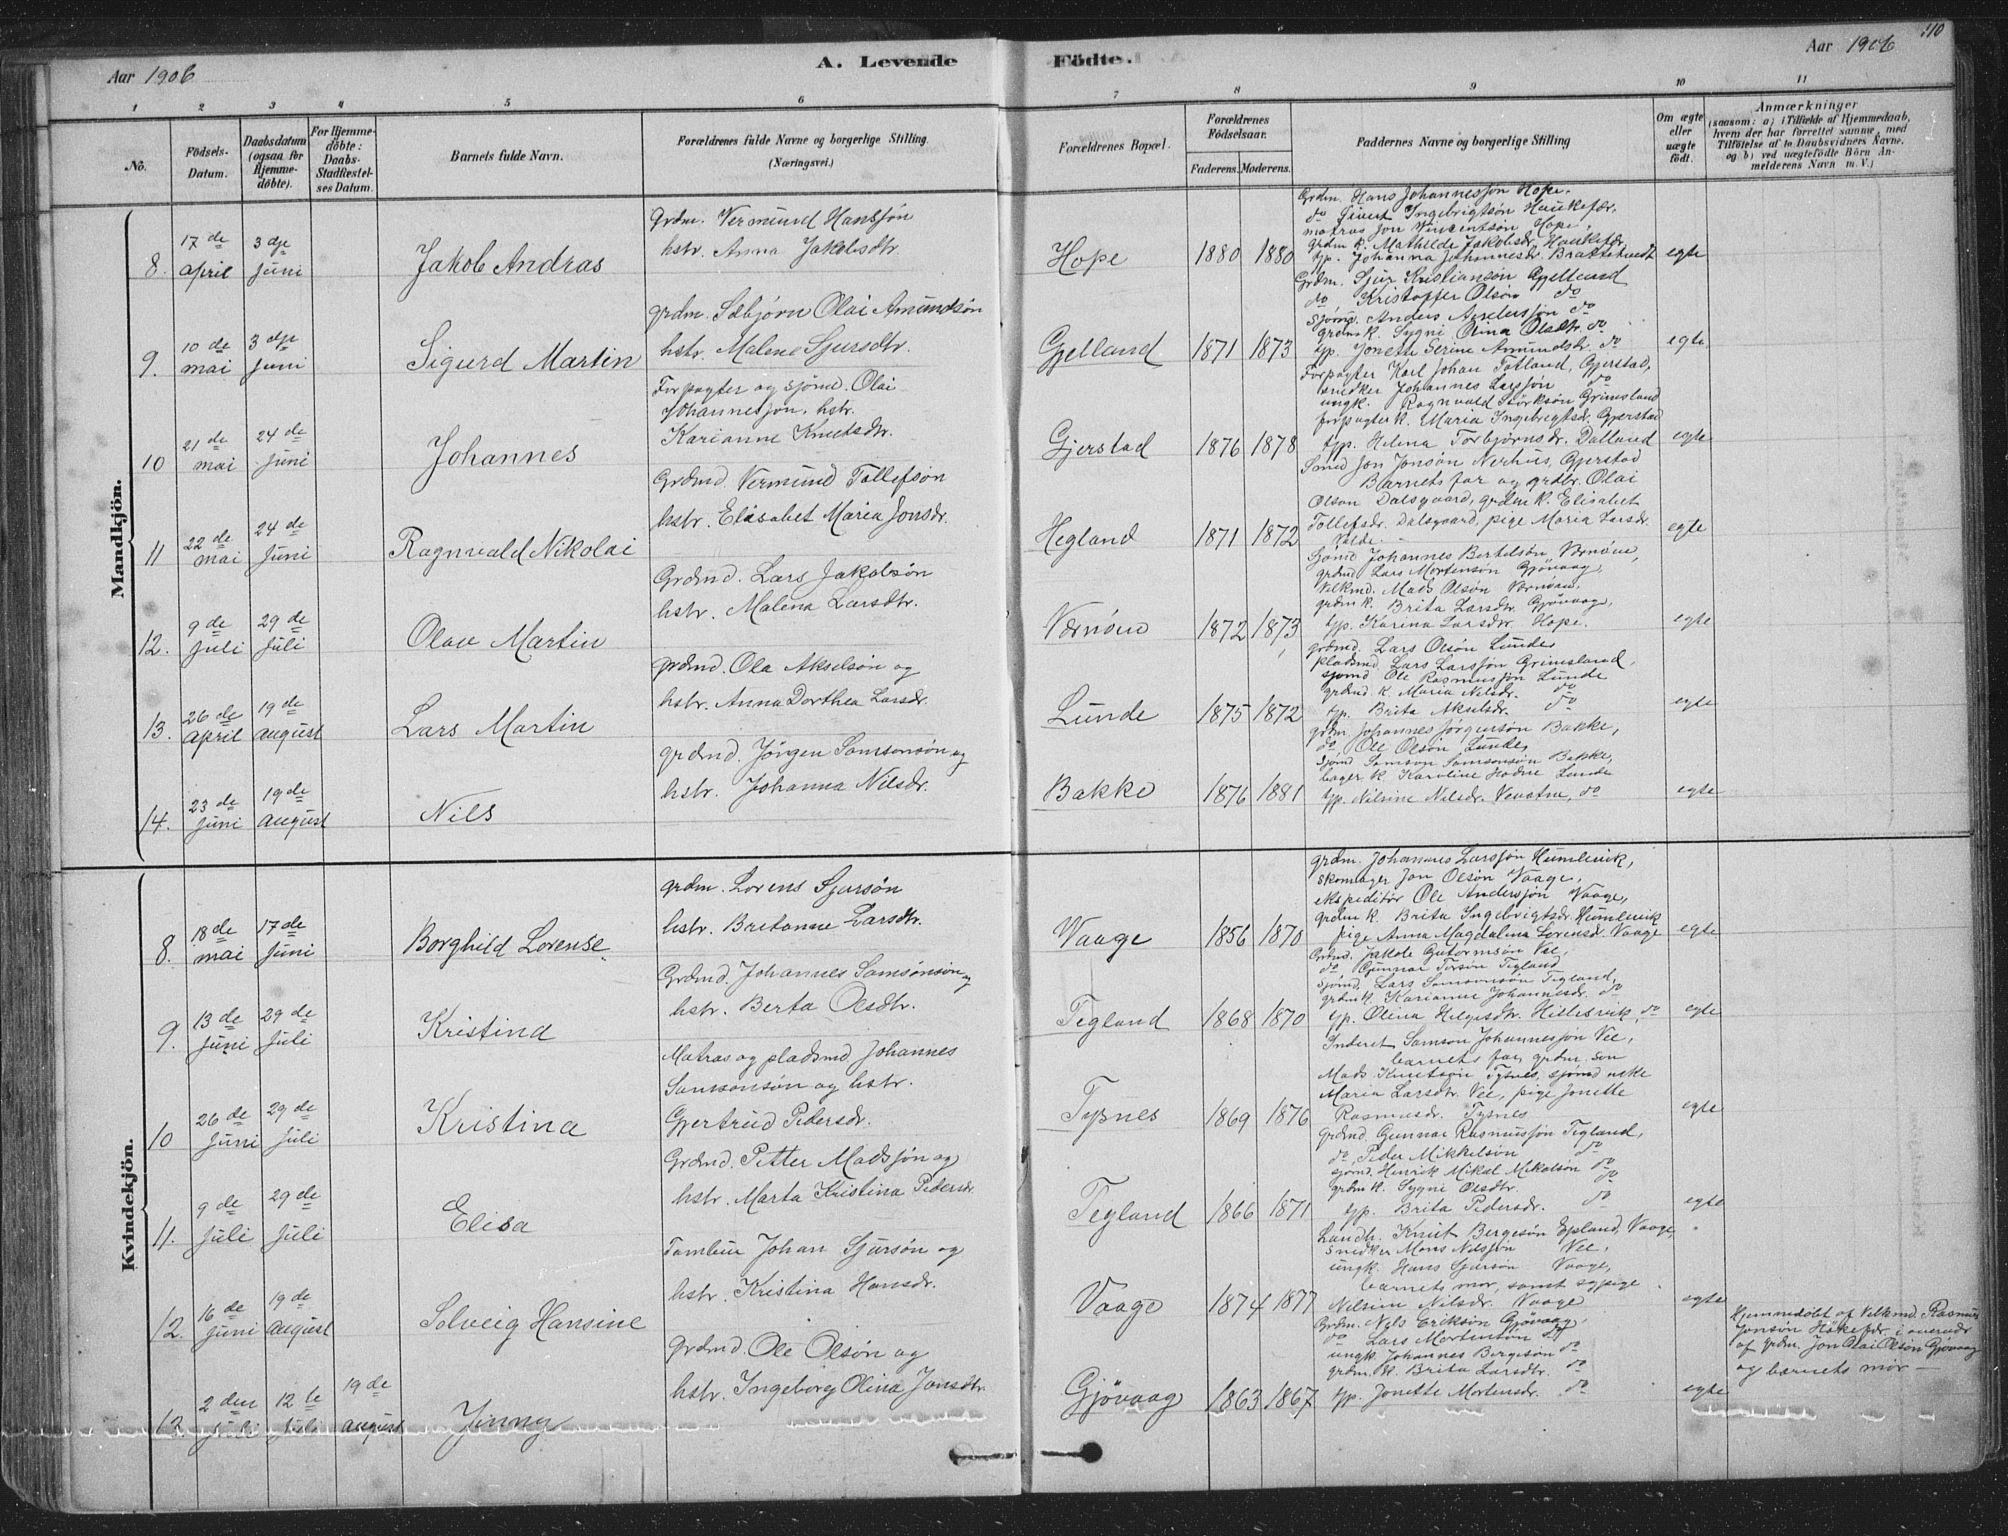 Aar 1906
A. Levende
Födte.
Aar 1906
110
1 2 3 4 5 6 7 8 9 10 11
No.
Födsels-
Datum.
Daabsdatum
(ogsaa for
Hjemme-
döbte).
For Hjemme-
döbte:
Daabs-
Stadfæstel-
ses Datum.
Barnets fulde Navn.
Forældrenes fulde Navne og borgerlige Stilling.
(Næringsvei.)
Forældrenes Bopæl.
Forældrenes
Födselsaar.
Faderens. Moderens.
Faddernes Navne og borgerlige Stilling
Om ægte
eller
uægte
födt.
Anmærkninger
(saasom: a) i Tilfælde af Hjemmedaab,
hvem der har forrettet samme, med
Tilföielse af to Daabsvidners Navne,
og b) ved uægtefödte Börn An-
melderens Navn m. V.)
Mandkjön.
8. 17de april
3dje Juni
Jakob Andras
Grdm. Vermund Hansjön
hstr. Anna Jakobsdtr.
Hope
1880 1880
Grdm. Hans Johannesjön Hope,
do Sivert Ingebrigtsön Haukefær,
matros Jon Vincentsön Hope,
grdm k. Mathilde Jakobsdr. Haukefær
tp. Johanna Johannesdr. Brattetveidt
egte
9. 10de mai
3dje Juni
Sigurd Martin
grdm. Sæbjörn Olai Amundsön
hstr. Malene Sjursdtr.
Gjelland
1871 1873
Grdm. Sjur Kristiansön Gjelland
do Kristoffer Olsön do
Sjömd. Anders Andersjön do
grdm k. Sygni Olina Olsdtr. do
tp. Jonette Serine Amundsdtr. do
egte
10 21de mai
24de Juni
Johannes
Forpagter og sjömd. Olai
Johannesjön, hstr.
Karianne Knutsdtr.
Gjerstad
1876 1878
Forpagter Karl Johan Totland, Gjerstad,
snedker Johannes Larsjön do
ungk. Ragnvald Störksön Grimsland
forpagter k. Maria Ingebrigtsdr. Gjerstad
tp. Helena Torbjörnsdr. Dalland
egte
11 22de mai
24de Juni
Ragnvald Nikolai
Grdmd. Vermund Tollefsön
hstr. Elisabet Maria Jonsdr.
Hegland
1871 1872
Smed Jon Jonsön Nerhus, Gjerstad
Barnets far og grdbr. Olai
Olson Dalsgaard, grdm k. Elisabet
Tollefsdr. Dalsgaard, pige Maria Larsdr.
egte
12. 9de Juli
29de Juli
Olav Martin
Grdmd. Lars Jakobsön
hstr. Malena Larsdtr.
Værnöen
1872 1873
Sjömd Johannes Bertelsön Værnöen,
grdmd Lars Mortensön Gjövaag,
Vilkmd. Mads Olsön Værnöen,
grdm k. Brita Larsdtr. Gjövaag,
tp. Karina Larsdtr. Hope.
egte
13. 26de april
19de august
Lars Martin
grdmd. Ola Akselsön og
hstr. Anna Dorthea Larsdr.
Lunde
1875 1872
grdmd. Lars Olsön Lunde,
pladsmd. Lars Larsjön Grimsland,
sjömd Ole Rasmusjön Lunde
grdmd k. Maria Nilsdr. do
tp. Brita Akselsdr. do
egte
14. 23de Juni
19de august
Nils
grdmd. Jörgen Samsonsön og
hstr. Johanna Nilsdr.
Bakke
1876 1881
grdm Johannes Jörgensön Bakke,
do Ole Olsön Lunde,
sjömd Samson Samsonsön Bakke,
bager k. Karoline Hodne Lunde
tp. Nilsine Nilsdr. Vevatne, do
egte
Kvindekjön.
8. 18de mai
17de Juni
Borghild Lorense.
grdm. Lorens Sjursön
hstr. Britanne Larsdtr.
Vaage
1856 1870
grdm. Johannes Larsjön Humlevik,
skomager Jon Olsön Vaage,
ekspeditör Ole Andersjön Vaage,
grdm k. Brita Ingebrigtsdr. Humlevik
pige Anna Magdalina Lorensdr. Vaage
egte
9. 13de Juni
29de Juli
Kristina
Grdmd. Johannes Samsönsön og
hstr. Berta Olsdtr.
Tegland
1868 1870
Grdmd. Jakob Gutormsön Vee,
do Gunnar Torsön Tegland
sjömd. Lars Samsonsön Tegland,
grdm k. Karianne Johannesdr. do
tp. Olina Helgesdtr. Hillesvik, do
egte
10 26de Juni
29de Juli
Kristina
Matros og pladsmd. Johannes
Samsonsön og hstr.
Gjertrud Pedersdr.
Tysnes
1869 1876
Inderst Samson Johannesjön Vee,
barnets far, grdm. sön
Mads Knutsön Tysnes, sjömd enke
Maria Larsdtr. Vee, pige Jonette
Rasmusdr. Tysnes
egte
11. 9de Juli
29de Juli
Elisa
Grdmd. Petter Madsjön og
hstr. Marta Kristina Pedersdr.
Tegland
1866 1871
Grdmd. Gunnar Rasmusjön Tegland,
do, Peder Mikkelsön do
sjömd. Henrik Mikal Mikalsön do
grdm k. Sygni Olsdtr. do
tp. Brita Pedersdr. do
egte
12. 16de Juni
19de august
Solveig Hansine
Tambur Johan Sjursön og
hstr. Kristina Hansdr.
Vaage
1874 1877
Landh. Knut Bergesön Epland, Vaage,
Snedker Mons Nilsjön Vee,
ungk. Hans Sjursön Vaage,
barnets mor, samt sypige
Nilsine Nilsdr. Vaage
egte
13. 2den Juli
12te Juli
19de august
Jenny
Grdmd. Ole Olsön og
hstr. Ingeborg Olina Jonsdtr.
Gjövaag
1863 1867
Grdm. Nils Eriksön Gjövaag,
do Lars Mortensön do
ungk. Johannes Bergesön do
grdm. k. Brita Larsdtr. do
tp. Jonette Mortensdr. do
egte
Hjemmedöbt af Vilkmd. Rasmus
Jonsön Hökefdr. i overvær
af grdm. Jon Olai Olsön Gjövaag
og barnets mor —